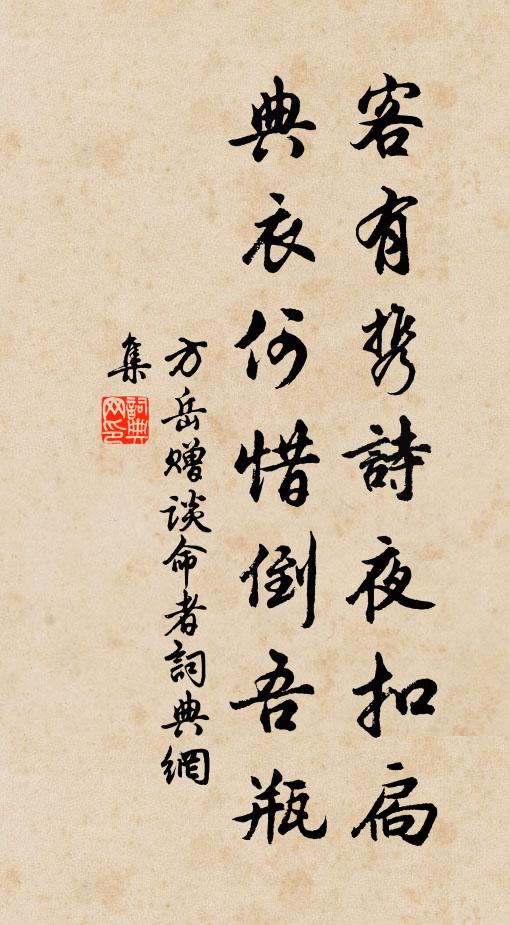 客有携詩夜扣扃
典衣何惜倒吾瓶
方岳赠谈命者詞典網
集
詞典网印